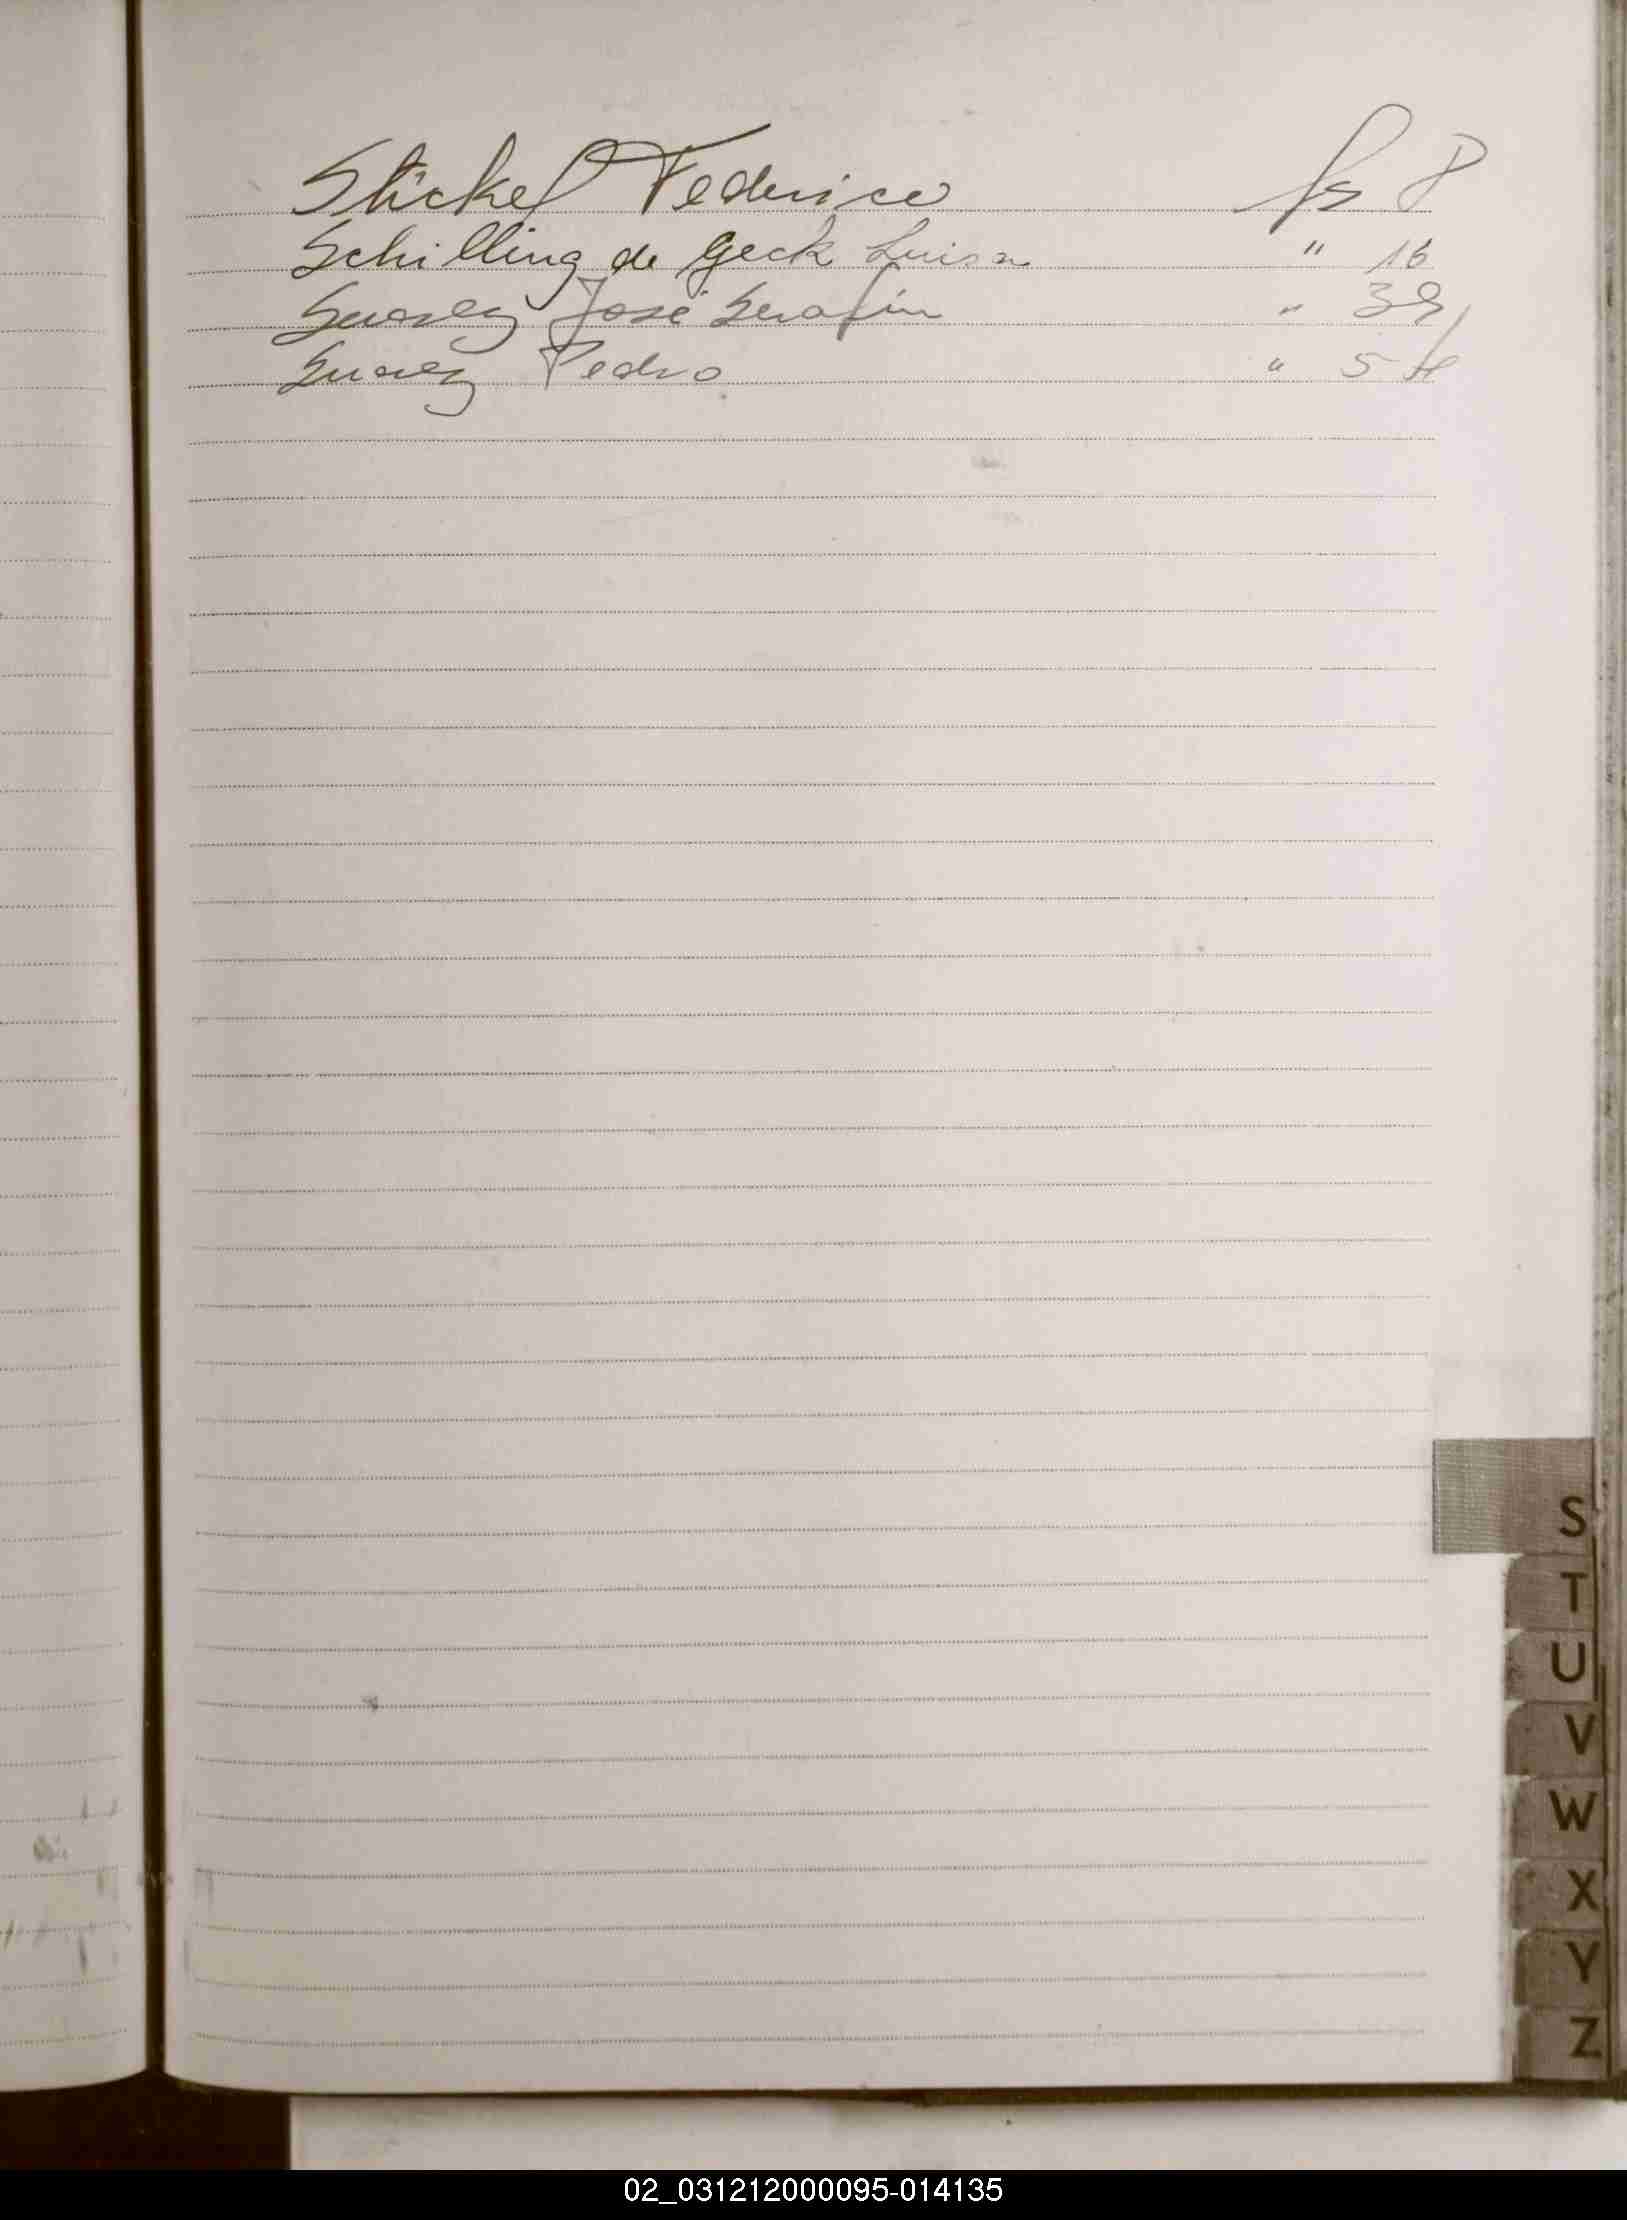 Stickel Federico fs 8
Schilling de Geck Luisa " 16
Suarez José Serafin " 39
Suarez Pedro " 54
S
T
U
V
W
X
Y
Z
02_031212000095-014135